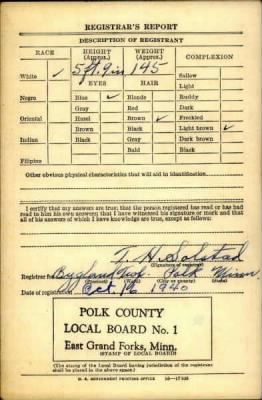 REGISTRAR'S REPORT
DESCRIPTION OF REGISTRANT
RACE HEIGHT (Approx.) WEIGHT (Approx.) COMPLEXION
White ✓ 5 ft. 9 in 145 Sallow
EYES HAIR Light
Negro Blue ✓ Blonde Ruddy
Gray Red Dark
Oriental Hazel Brown ✓ Freckled
Brown Black Light brown ✓
Indian Black Gray Dark brown
Bald Black
Filipino
Other obvious physical characteristics that will aid in identification
I certify that my answers are true; that the person registered has read or has had
read to him his own answers; that I have witnessed his signature or mark and that
all of his answers of which I have knowledge are true, except as follows:
T. H. Solstad
(Signature of registrar)
Registrar for Bygland Twp. Polk Minn
(Precinct) (Ward) (City or county) (State)
Date of registration Oct. 16 1940
POLK COUNTY
LOCAL BOARD No. 1
East Grand Forks, Minn.
(STAMP OF LOCAL BOARD)
(The stamp of the Local Board having jurisdiction of the registrant
shall be placed in the above space.)
U. S. GOVERNMENT PRINTING OFFICE 16-17105